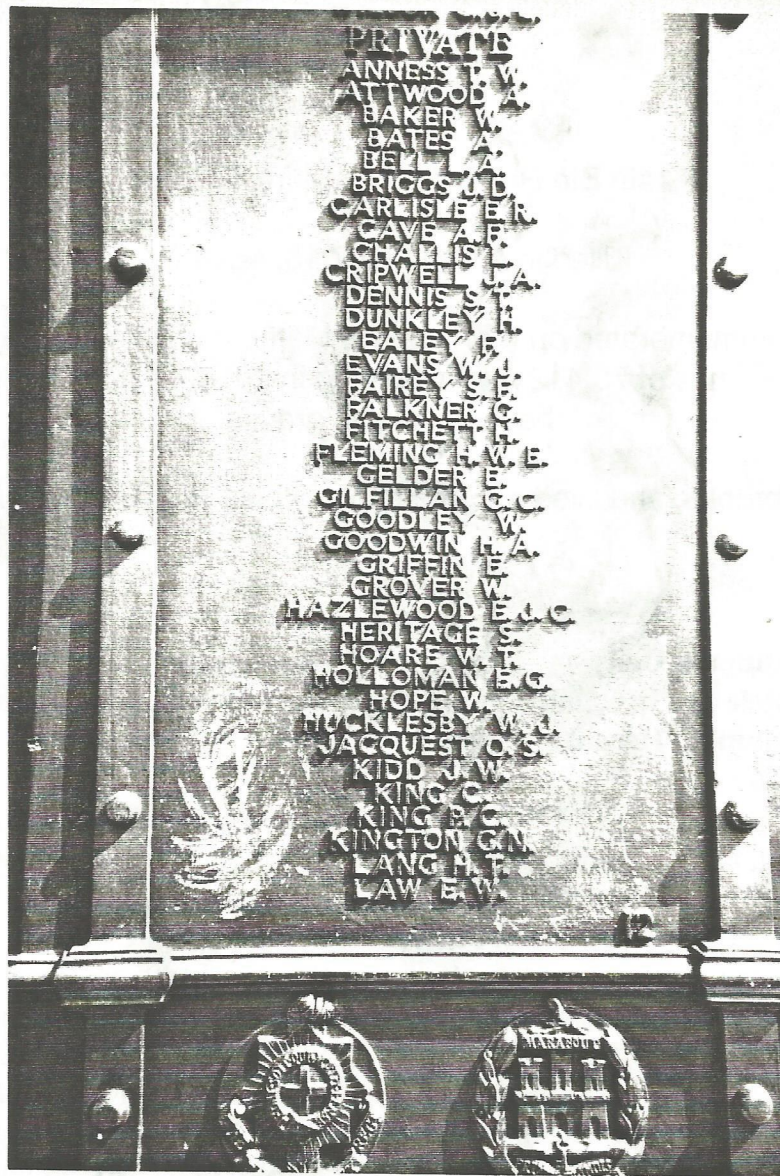 PRIVATE
ANNESS T. W.
ATTWOOD A.
BAKER W.
BATES A.
BELL L. A.
BRIGGS J. D.
CARLISLE E. R.
CAVE A. F.
CHALLIS L.
CRIPWELL J. A.
DENNIS S. T.
DUNKLEY H.
EALEY F.
EVANS W. J.
FAIREY S. F.
FALKNER G.
FITCHETT H.
FLEMING H. W. E.
GELDER E.
GILFILLAN G. C.
GOODLEY W.
GOODWIN H. A.
GRIFFIN E.
GROVER W.
HAZLEWOOD E. J. G.
HERITAGE S.
HOARE W. T.
HOLLOMAN E. G.
HOPE W.
HUCKLESBY W. J.
JACQUEST O. S.
KIDD J. W.
KING C.
KING P. C.
KINGTON G. N.
LANG H. T.
LAW E. W.
12
MARABOUT